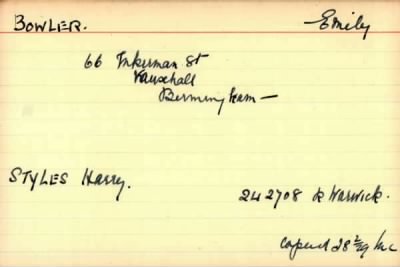 BOWLER. Emily
66 Inkerman St
Vauxhall
Birmingham —
STYLES Harry.
242708 R Warwick.
28